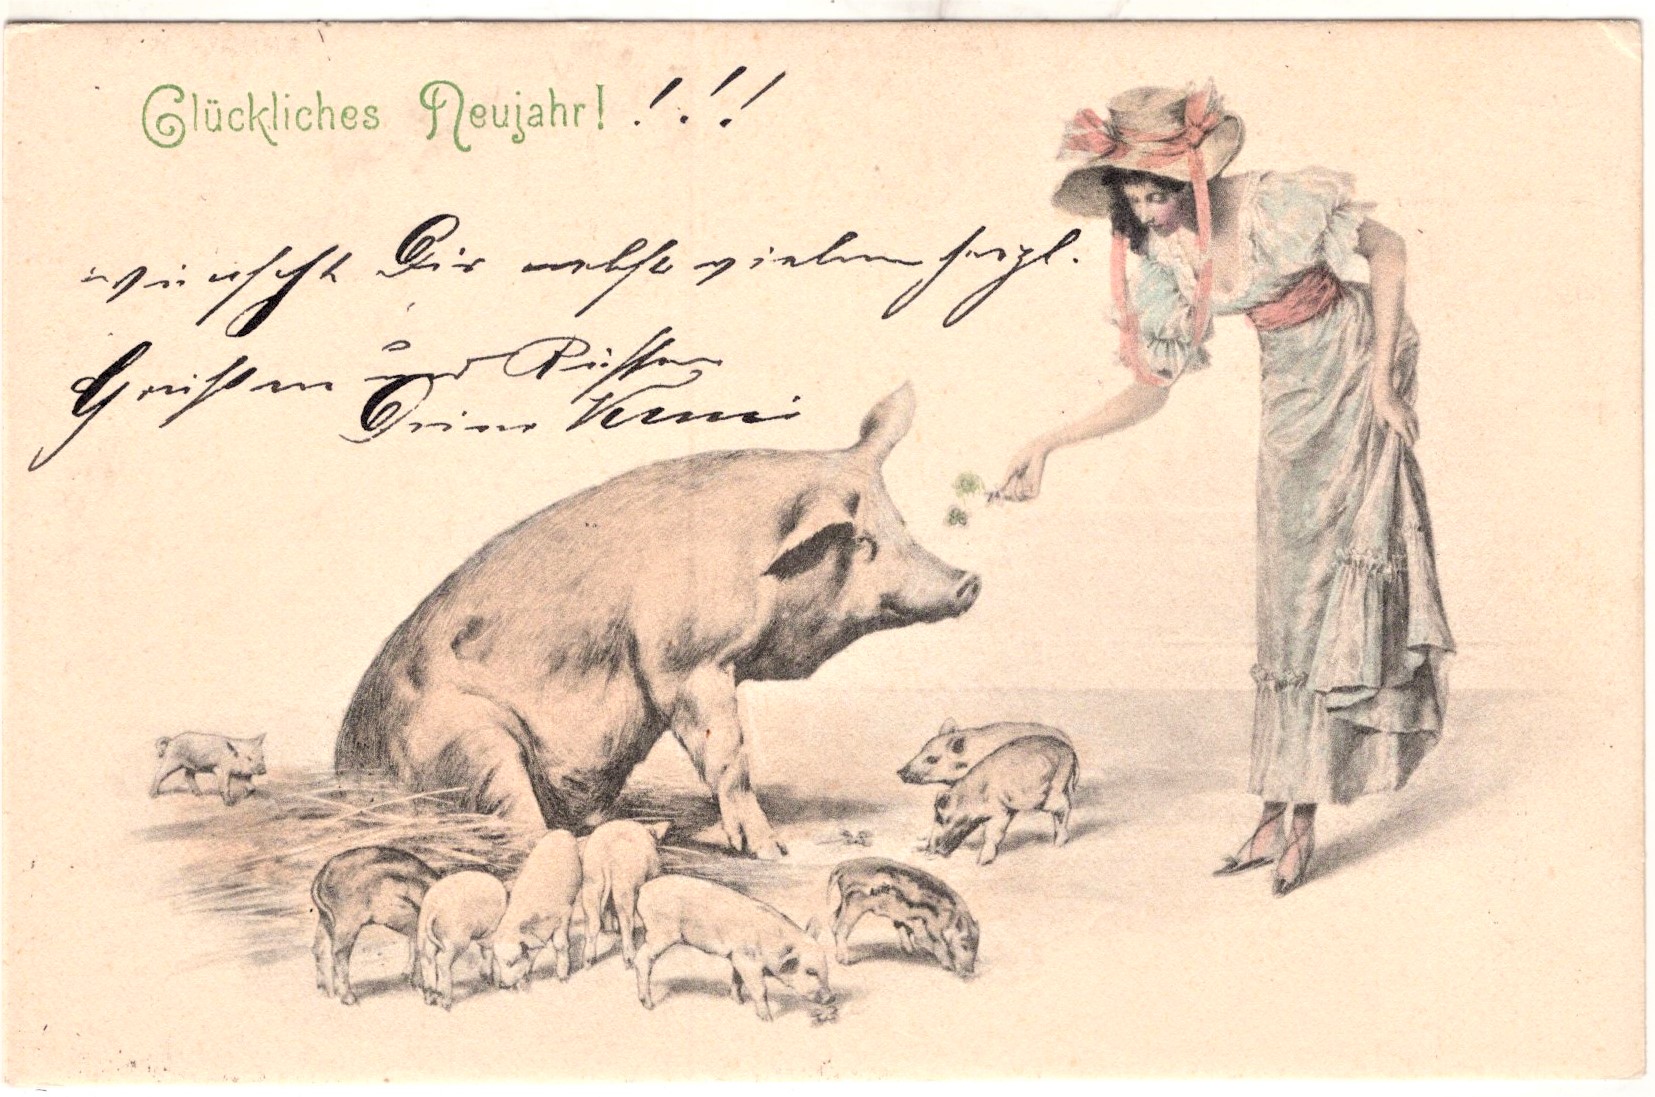 Glückliches Neujahr! !!!
wünscht Dir nebst vielen herzl.
Grüssen und Küssen
Deine